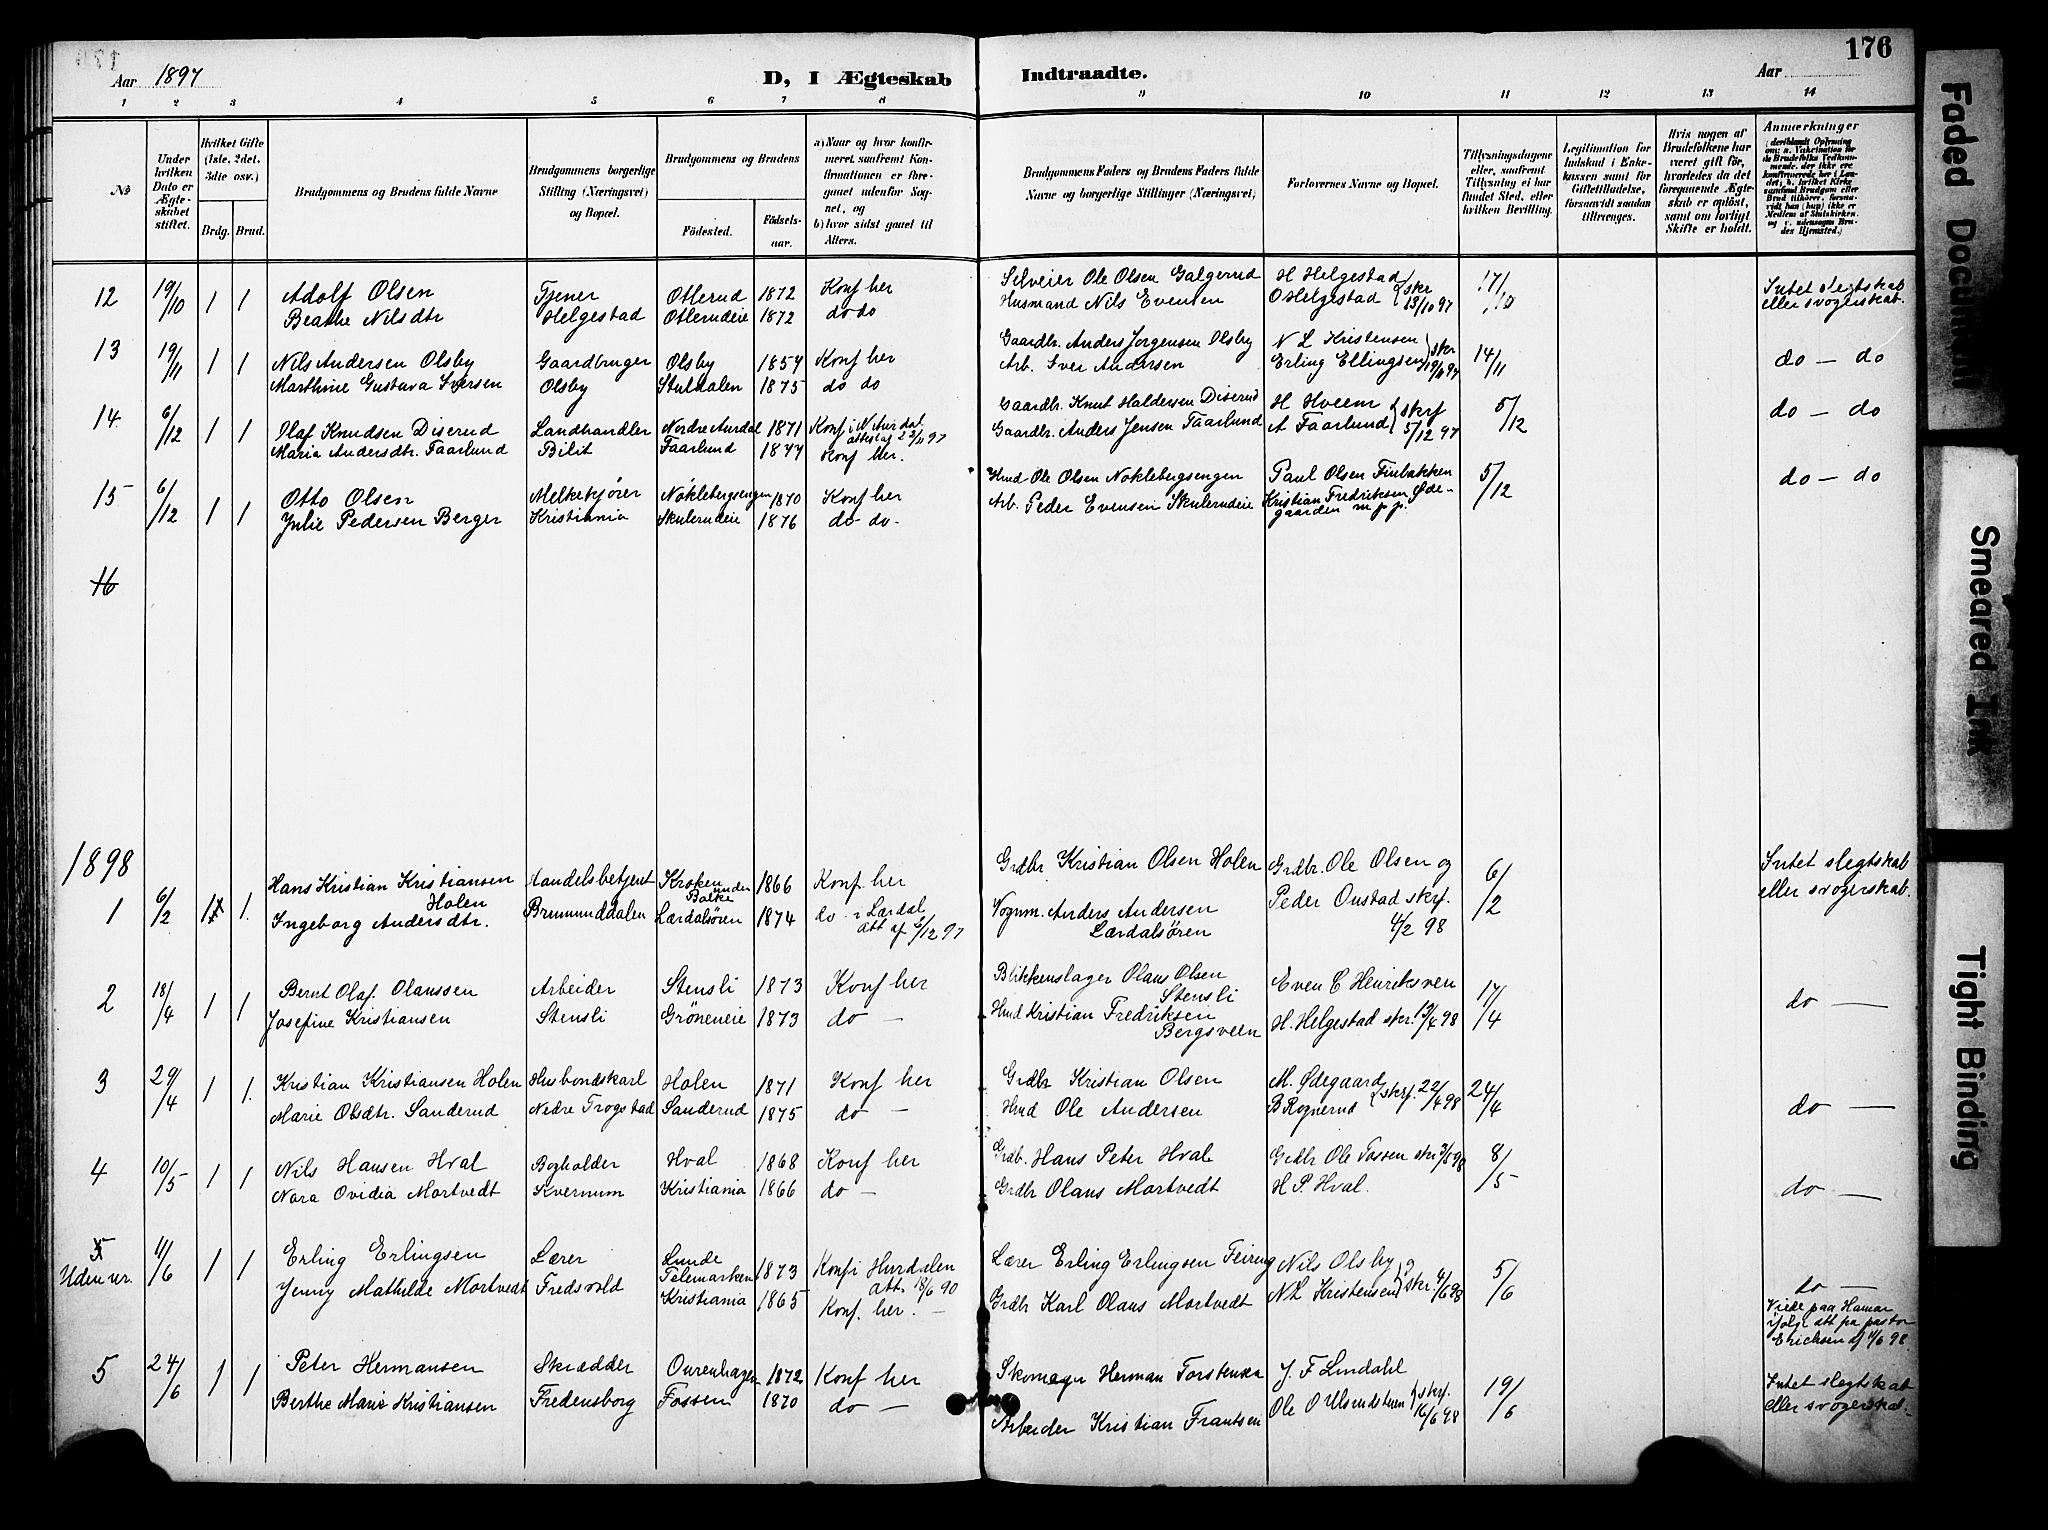 176
Aar 1897
D, I Ægteskab Indtraadte.
Aar
1 2 3 4 5 6 7 8 9 10 11 12 13 14
No
Under hvilken Dato er Ægteskabet stiftet.
Hvilket Gifte (1ste, 2det, 3die osv.)
Brdg. Brud.
Brudgommens og Brudens fulde Navne
Brudgommens borgerlige Stilling (Næringsvei) og Bopæl.
Brudgommens og Brudens
Fødested. Fødselsaar.
a) Naar og hvor konfirmeret, samt
b) hvor sidst gaaet til Alters.
Brudgommens Faders og Brudens Faders fulde Navne og borgerlige Stillinger (Næringsvei).
Forlovernes Navne og Bopæl.
Tillysningsdagene eller, saafremt Tillysning ei har fundet Sted, efter hvilken Bevilling.
Legitimation for Indskud i Enkekassen samt for Giftetilladelse, forsaavidt saadan tiltrænges.
Hvis nogen af Brudefolkene har været gift før, hvorledes da det foregaaende Ægteskab er opløst, samt om lovligt Skifte er holdt.
Anmærkninger
12 19/10 1 1 Adolf Olsen Tjener Otlerud 1872 Konf her Selveier Ole Olsen Galgerud H Helgestad skr 17/10 Intet slegtskab
Beathe Nilsdtr Helgestad Otlerudeie 1872 do do Husmand Nils Evensen O Helgestad 13/10 97 eller svogerskab.
13 19/11 1 1 Nils Andersen Olsby Gaardbruger Olsby 1857 Konf her Gaardbr. Anders Jørgensen Olsby N L Kristensen skr 14/11 do — do
Marthine Gustava Iversen Olsby Stuldalen 1875 do do Arb. Iver Andersen Erling Ellingsen 19/11 97
14 6/12 1 1 Olaf Knudsen Diserud Landhandler Nordre Aurdal 1871 Konf i N Aurdal Gaardbr. Knut Haldersen Diserud H Hveem skrf 5/12 do — do
attest af 23/11 97
Maria Andersdtr. Faarlund Bilit Faarlund 1877 Konf her. Gaardbr. Anders Jensen Faarlund A Faarlund 5/12 97
15 6/12 1 1 Otto Olsen Melkekjører Nøklebergsengen 1870 Konf her Hmd Ole Olsen Nøklebergsengen Paul Olsen Finbakken 5/12 do — do
Julie Pedersen Berger Kristiania Skulerudeie 1876 do do. Arb. Peder Evensen Skulerudeie Kristian Fredriksen Ødegaarden m p p.
16
1898
1 6/2 1 1. Hans Kristian Kristiansen Holen Handelsbetjent Kroken under Balke 1866 Konf. her Grdbr Kristian Olsen Holen Grdbr. Ole Olsen og 6/2 Intet slegtskab
Ingeborg Andersdtr. Brumunddalen Lærdalsøren 1874 do i Lærdal Vognm. Anders Andersen Peder Onstad skrf. eller svogerskab.
att af /12 97 Lærdalsøren 4/2 98
2 18/4 1 1 Bernt Olaf. Olaussen Arbeider Stensli 1873 Konf her Blikkenslager Olaus Olsen Stensli Even C Henriksven 17/4 do —
Josefine Kristiansen Stensli Grøneneie 1873 do — Hmd Kristian Fredriksen Bergsveen H. Helgestad skr. 13/4 98
3 29/4 1 1. Kristian Kristiansen Holen Husbondskarl Holen 1871 Konf her Grdbr Kristian Olsen M. Ødegaard skrf. 22/4 98 24/4
Marie Olsdtr. Sanderud Nedre Trogstad Sanderud 1875 do — Hmd Ole Andersen B Rognerud do —
4 10/5 1 1 Nils Hansen Hval Bogholder Hval 1868 Konf her Grdb. Hans Peter Hval Grdbr Ole Fossen skr 3/5 98 8/5
Nora Ovidia Mortvedt Kvernum Kristiania 1866 do — Grdbr Olaus Mortvedt H P. Hval. do —
5
Uden nr. 11/6 1 1 Erling Erlingsen Lærer Lunde Telemarken 1873 Konf i Hurdalen Lærer Erling Erlingsen Feiring Nils Olsby skr 4/6 98 5/6
att. 18/6 90
Jenny Mathilde Mortvedt Fredsvold Kristiania 1865 Konf. her. — Grdbr Karl Olaus Mortvedt N L Kristensen do —
Viede paa Hamar ifølge att fra pastor Ericksen af 11/6 98.
5 24/6 1 1 Peter Hermansen Skrædder Ourenhagen 1872 Konf her Skomager Herman Torstensen J. F Lindahl 19/6 Intet slegtskab
Berthe Marie Kristiansen Fredensborg Fossen 1870 do — Arbeider Kristian Frantsen Ole O Ulsendsteen skrf. 16/6 98 eller svogerskab.
Faded Document
Smeared Ink
Tight Binding